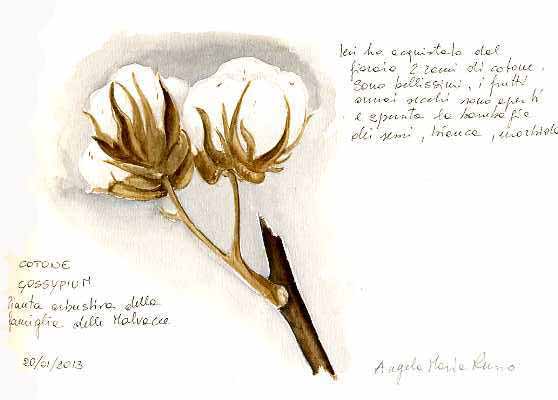 Ieri ho acquistato dal
fioraio 2 rami di cotone.
Sono bellissimi, i frutti
ormai secchi sono aperti
e spunta la bambagia
dei semi, bianca, morbida
COTONE
GOSSYPIUM
Pianta arbustiva della
famiglia delle Malvacee
20/01/2013
Angela Maria Russo